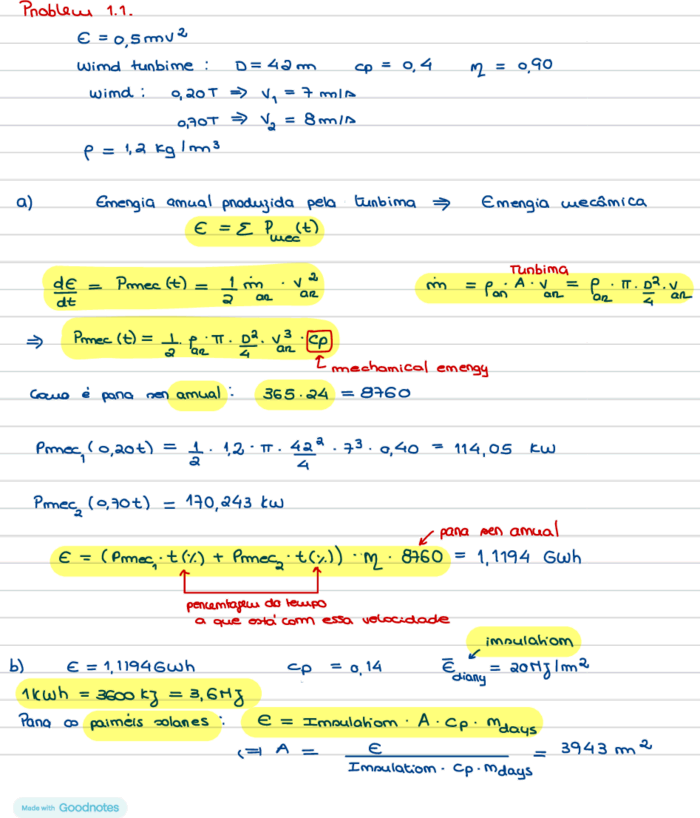 Problem 1.1.
E = 0,5mv²
Wind turbine : D = 42m cp = 0,4 η = 0,90
Wind : 0,20T ⇒ V₁ = 7 m/s
0,70T ⇒ V₂ = 8 m/s
ρ = 1,2 kg/m³
a) Energia anual produzida pela turbina ⇒ Energia mecânica
E = Σ Pmec(t)
dE/dt = Pmec(t) = 1/2 ṁ ar · v² ar
Turbina
ṁ = ρar · A · Var = ρar · π · D²/4 · Var
⇒ Pmec(t) = 1/2 · ρar · π · D²/4 · V³ar · cp
mechanical energy
Como é para ser anual : 365·24 = 8760
Pmec₁(0,20t) = 1/2 · 1,2 · π · 42²/4 · 7³ · 0,40 = 114,05 kW
Pmec₂(0,70t) = 170,243 kW
para ser anual
E = (Pmec₁ · t(%) + Pmec₂ · t(%)) · η · 8760 = 1,1194 Gwh
percentagem do tempo
a que está com essa velocidade
insulation
b) E = 1,1194Gwh cp = 0,14 E̅diary = 20MJ/m²
1kwh = 3600kJ = 3,6MJ
Para os painéis solares : E = Insulation · A · cp · ndays
⟺ A = E / Insulation · cp · ndays = 3943 m²
Made with Goodnotes